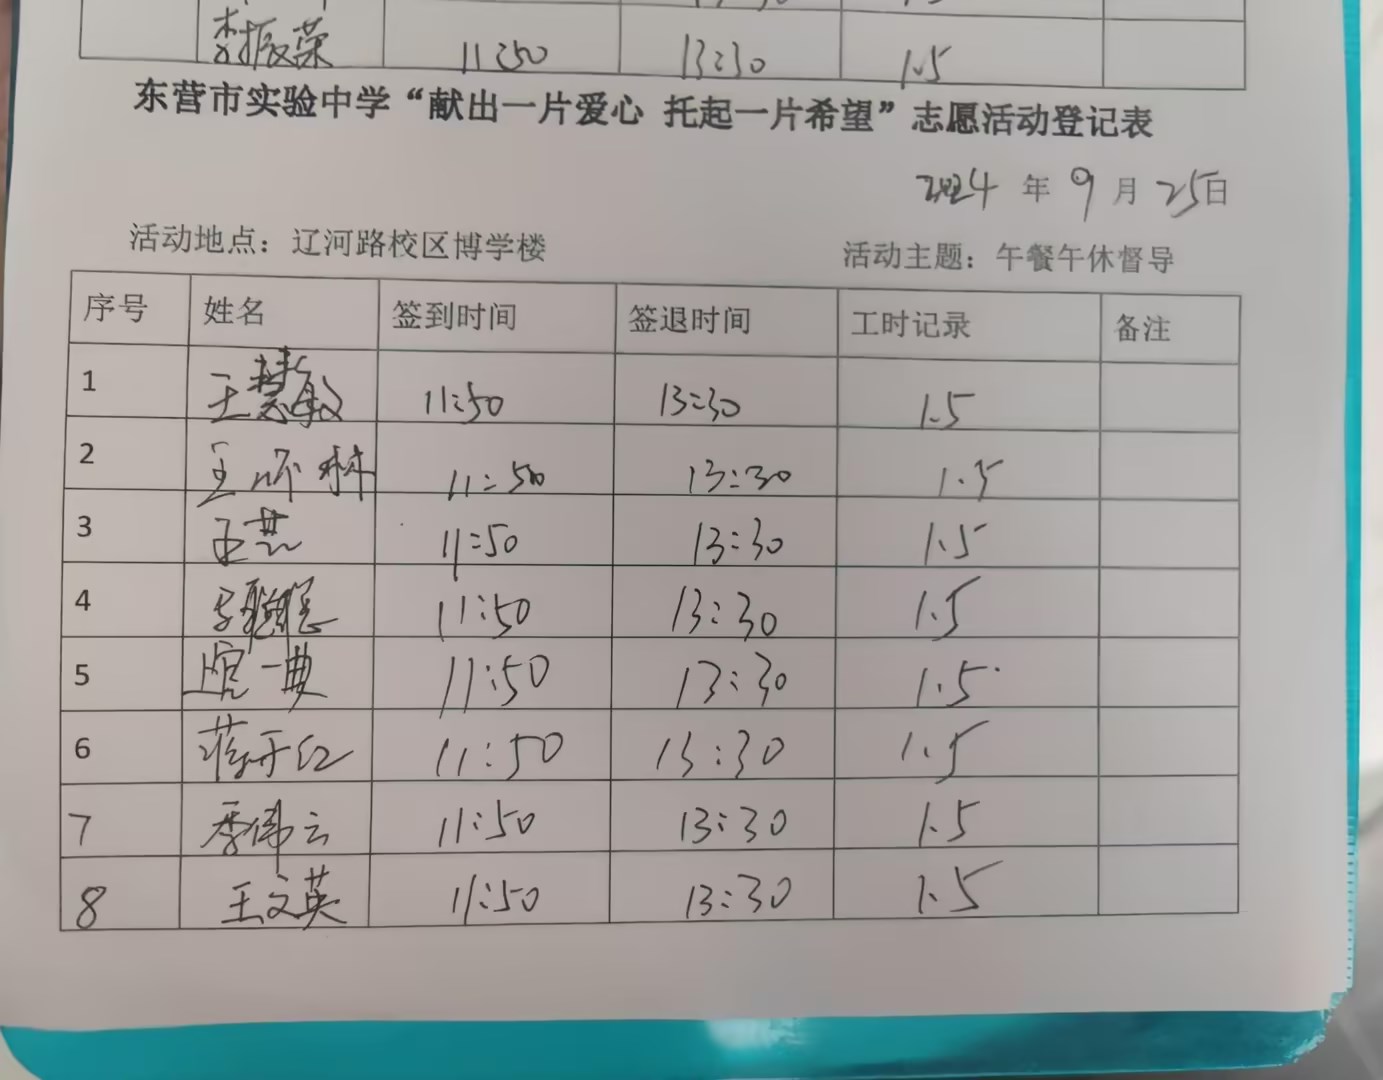 李振荣 11:50 13:30 1.5
东营市实验中学“献出一片爱心 托起一片希望”志愿活动登记表
2024 年 9 月 25日
活动地点：辽河路校区博学楼 活动主题：午餐午休督导
序号 姓名 签到时间 签退时间 工时记录 备注
1 王慧敏 11:50 13:30 1.5
2 王 11:50 13:30 1.5
3 王芸 11:50 13:30 1.5
4 11:50 13:30 1.5
5 一典 11:50 13:30 1.5
6 蒋开红 11:50 13:30 1.5
7 季伟云 11:50 13:30 1.5
8 王文英 11:50 13:30 1.5